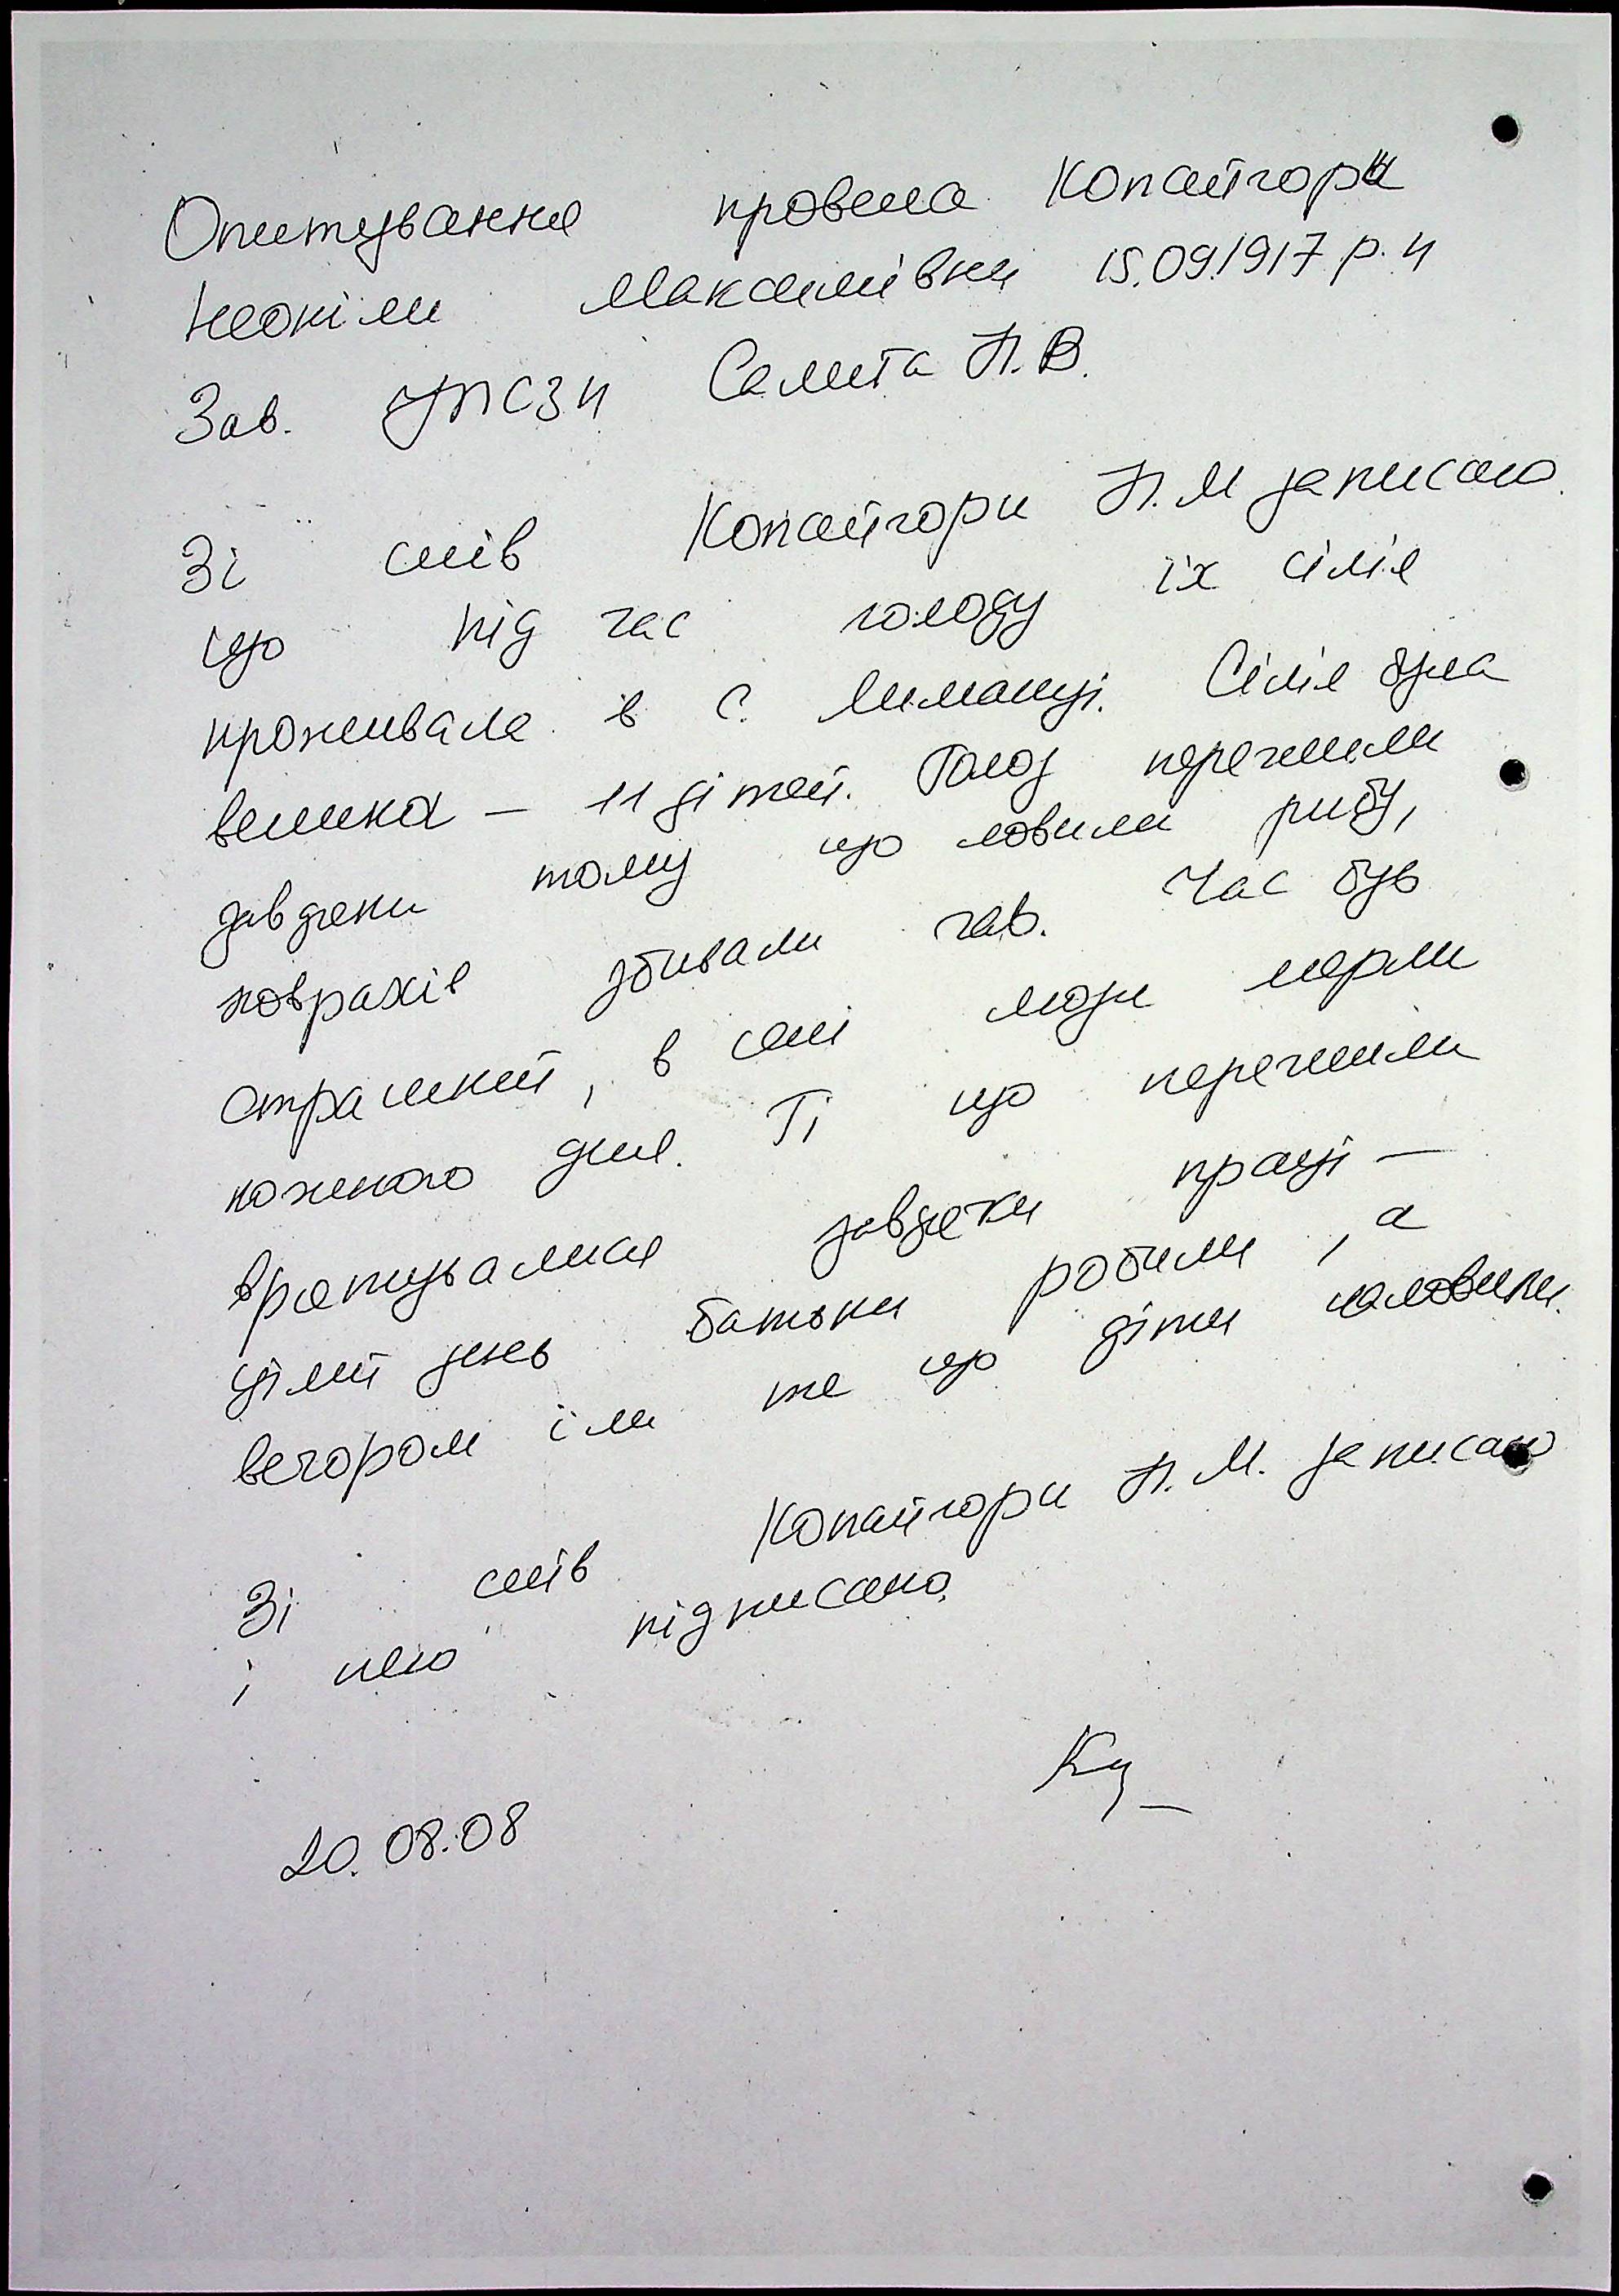 Опитування провела Копайгори
Неоніли Максимівни 15.09.1917 р. н
Зав. УПСЗН Самита Л.В.
Зі слів Копайгори Н.М записано
що під час голоду їх сімія
проживала в с. Лиманці. Сімія була
велика – 11 дітей. Голод пережили
завдяки тому що ловили рибу,
ховрахів збивали гав. Час був
страшний, в селі люди мерли
кожного дня. Ті що пережили
вратувалися завдяки праці –
цілий день батьки робили, а
вечором їли те що діти наловили.
Зі слів Копайгори Н.М. записано
і нею підписано.
20.08.08